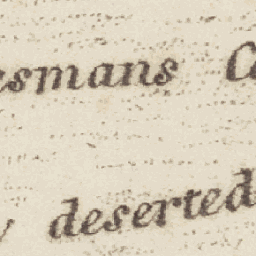 esmans C
deserted